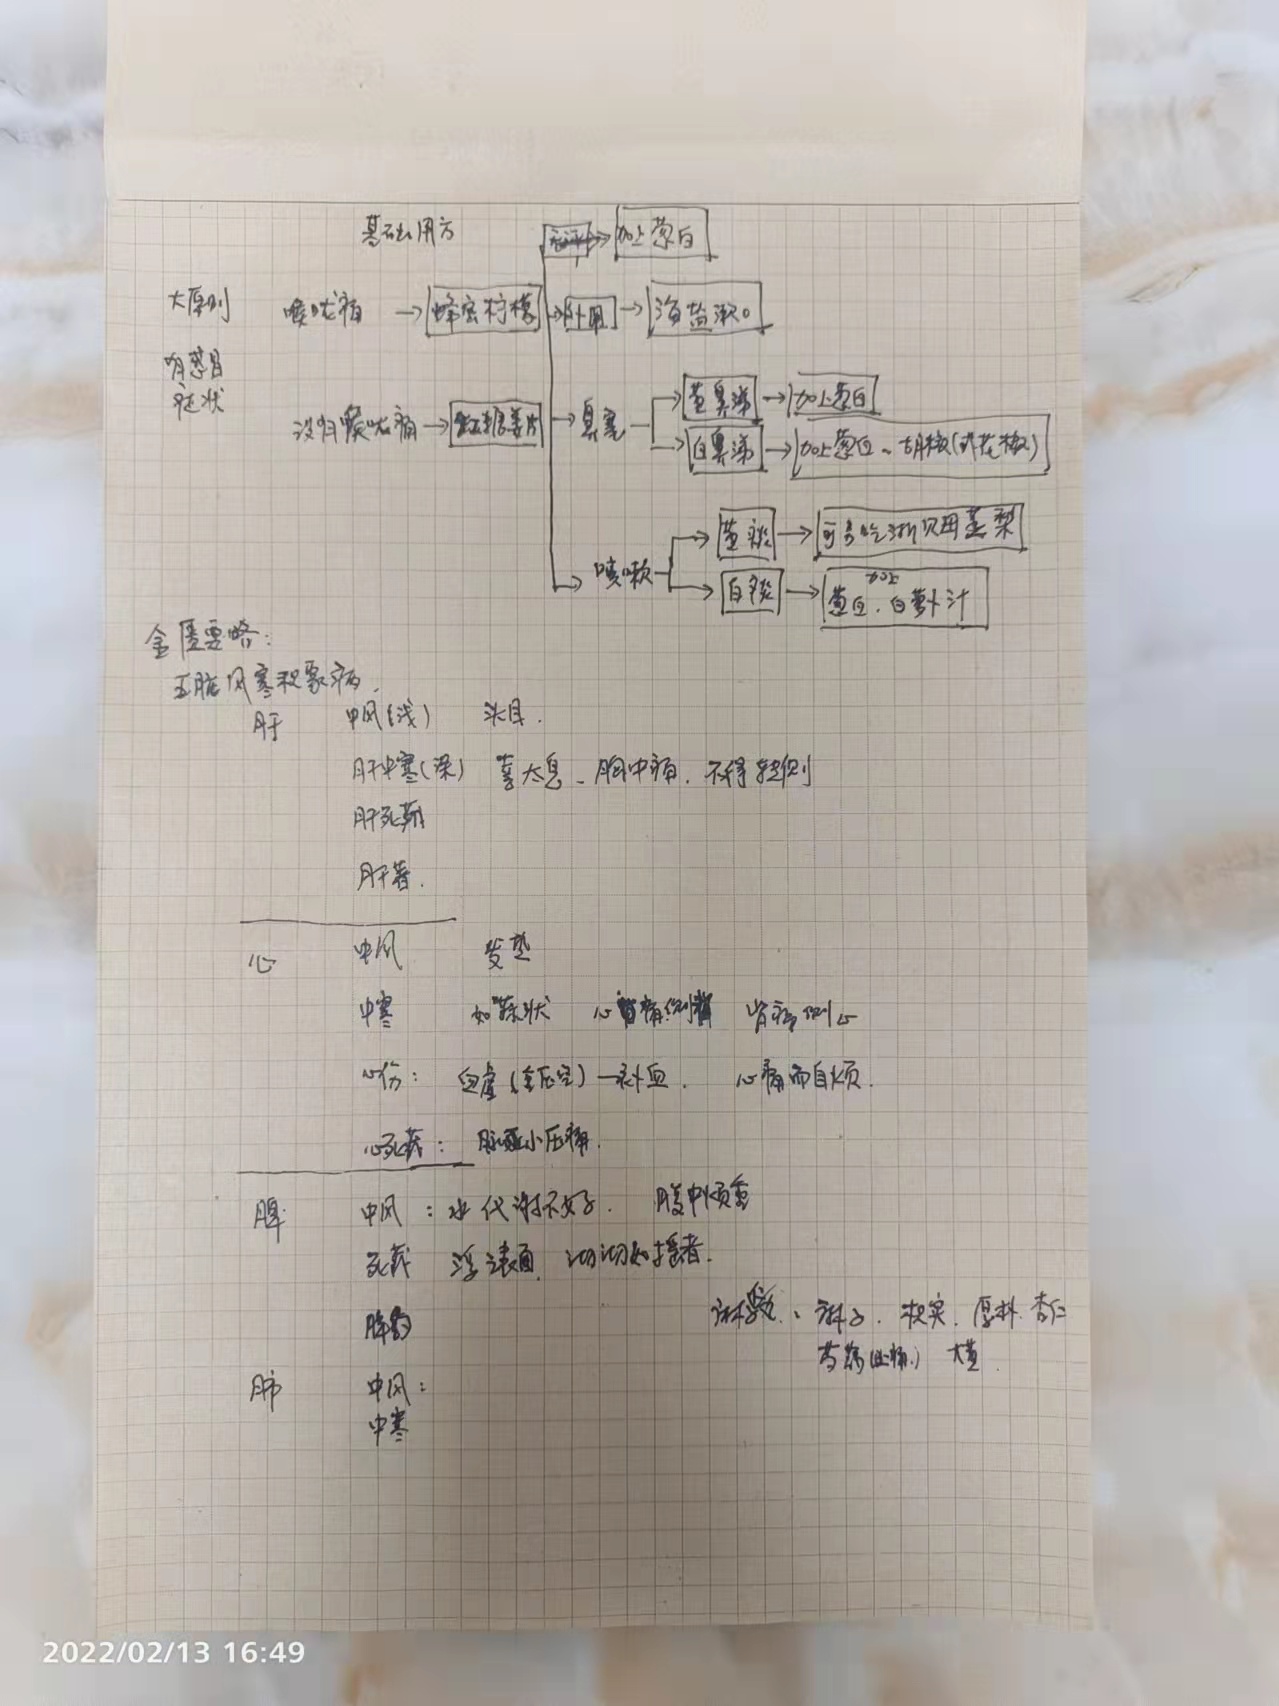 基础用方
加上葱白
大原则 喉咙痛 → 蜂蜜柠檬 → 外用 → 海盐漱口
有感冒
症状
没有喉咙痛 → 红糖姜片 → 鼻塞
黄鼻涕 → 加上葱白
白鼻涕 → 加上葱白、胡椒(或花椒)
咳嗽
黄痰 → 可多吃浙贝母蒸梨
白痰 → 加上葱白、白萝卜汁
金匮要略:
五脏风寒积聚病.
肝 中风(浅) 头目.
肝中寒(深) 喜太息、胸中痛. 不得转侧
肝死藏
肝着.
心 中风 发热
中寒 如蒜状
心伤: 血虚 补血. 心痛而自烦.
心死藏:
脾 中风: 水代谢不好. 腹中烦重
死藏 浮 如 者.
脾约 麻子. 枳实. 厚朴. 杏仁
芍药(止痛.) 大黄.
肺 中风:
中寒
2022/02/13 16:49